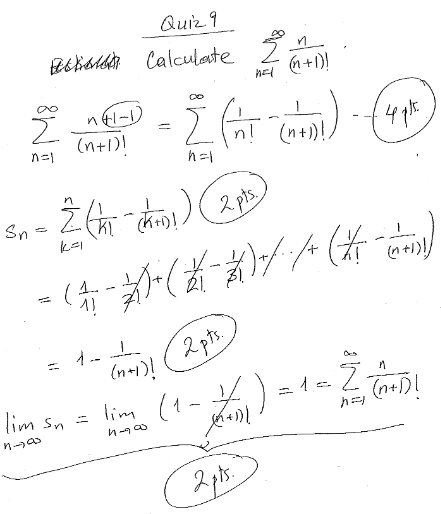 Quiz 9
Calculate ∑_{n=1}^{∞} n/(n+1)!.
∑_{n=1}^{∞} (n+1-1)/(n+1)! = ∑_{n=1}^{∞} (1/n! - 1/(n+1)!) --- 4 pts.
S_n = ∑_{k=1}^{n} (1/k! - 1/(k+1)!) 2 pts.
= (1/1! - 1/2!) + (1/2! - 1/3!) + ... + (1/n! - 1/(n+1)!)
= 1 - 1/(n+1)! 2 pts.
lim_{n→∞} S_n = lim_{n→∞} (1 - 1/(n+1)!) = 1 = ∑_{n=1}^{∞} n/(n+1)!
2 pts.